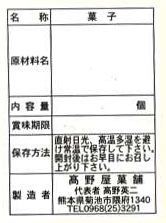 名称 菓子
原材料名
内容量 個
賞味期限
保存方法 直射日光、高温多湿を避
け常温で保存して下さい。
開封後はお早目にお召し
上がり下さい。
製造者 髙野屋菓舗
代表者 髙野英二
熊本県菊池市隈府1340
TEL0968(25)3291